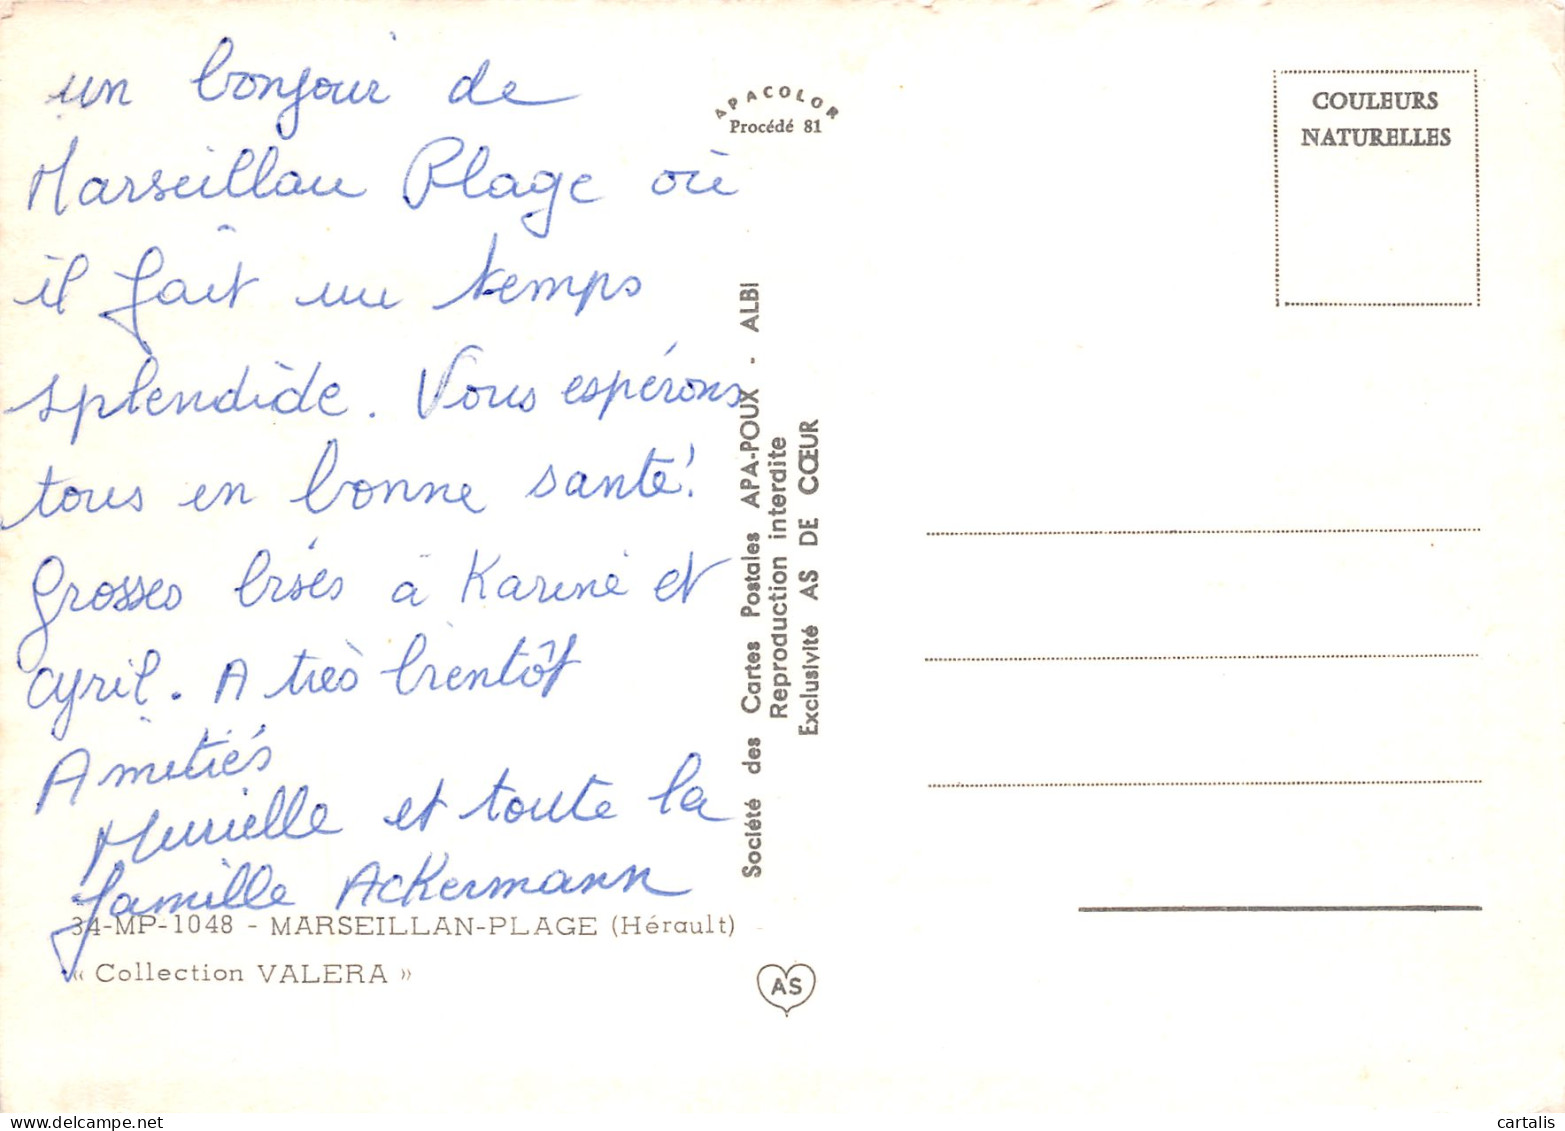 un bonjour de
Marseillan Plage où
il fait un temps
splendide. Vous espérons
tous en bonne santé!
Grosses bisés à Karine et
Cyril. A très bientôt
Amitiés
Murielle et toute la
famille Ackermann
34-MP-1048 - MARSEILLAN-PLAGE (Hérault)
« Collection VALERA »
APACOLOR
Procédé 81
Société des Cartes Postales APA-POUX - ALBI
Reproduction interdite
Exclusivité AS DE CŒUR
AS
COULEURS
NATURELLES
cartalis